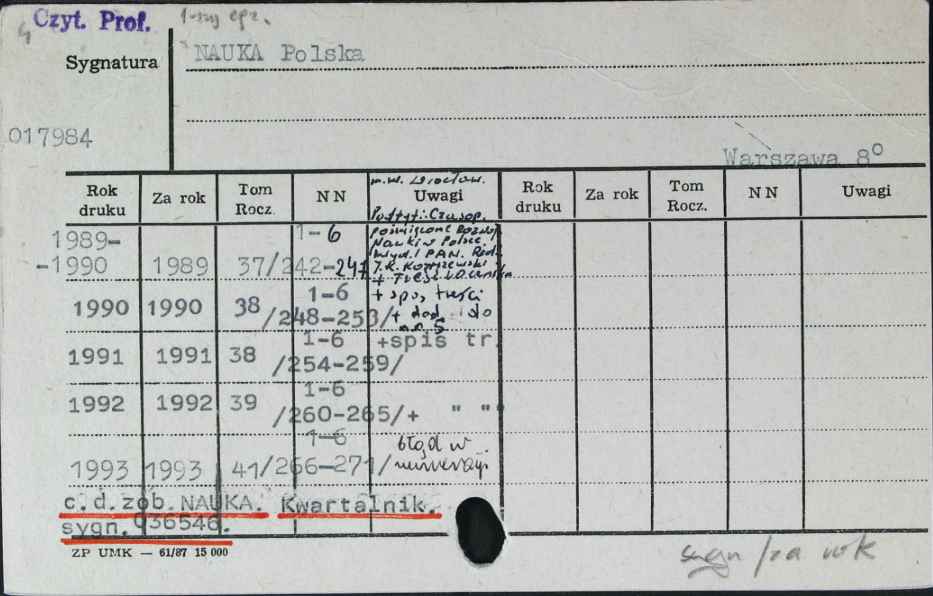 Czyt. Prof. 1-szy egz.
Sygnatura
NAUKA Polska
017984
Warszawa 8°
Rok druku
Za rok
Tom Rocz.
NN
m.w. Wrocław.
Uwagi
Rok druku
Za rok
Tom Rocz.
NN
Uwagi
Podtyt.: Czasop.
1989- 1-6 poświęcone Rozwoj.
-1990 1989 37/242-247 Nauki w Polsce.
Wyd. PAN. Red.
1990 1990 38 1-6 + spis treści
/248-253/+ dod. do
nr 5
1991 1991 38 1-6 +spis tr.
/254-259/
1992 1992 39 1-6
/260-265/+ " "
1993 1993 41 1-6 błąd w
/266-271/ numeracji
c.d.zob. NAUKA. Kwartalnik.
sygn. 036546.
ZP UMK — 61/87 15 000
sygn /za rok